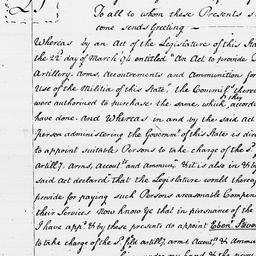 To all to whom these Presents s
come sends Greeting —
Whereas by an Act of the Legislature of this Sta
the 22d day of March 94 entitled "An Act to provide
Artillery, Arms, Accoutrements and Ammunition for
Use of the Militia of this State," the Commissrs there
were authorized to purchase the same which, accord
have done. And Whereas in and by the said Act
person administering the Governmt of this State is di
to appoint suitable Persons to take charge of the sd
Artilly. Arms, Accouts and Ammunn & it is also in & b
said Act declared that the Legislature would therea
provide for paying such Persons a reasonable Compen
their Services Now know Ye that in pursuance of the
I have appd & by these presents do appoint Eben
to take charge of the sd. fild artilly, arms Accouts & Ammu